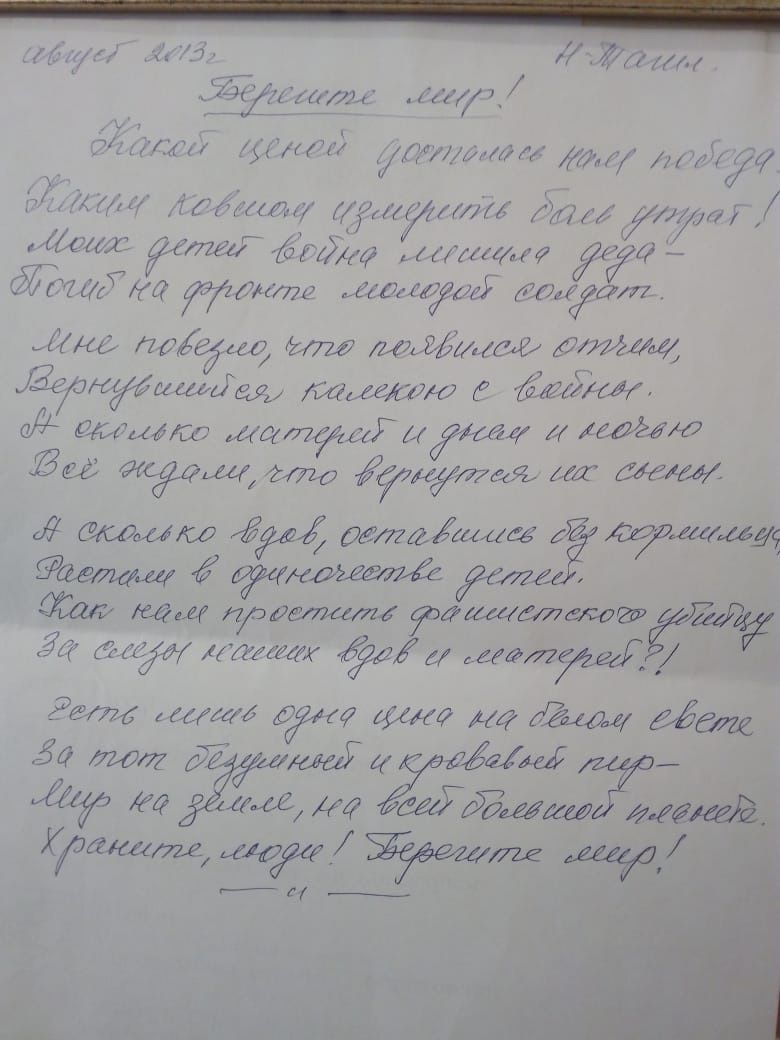 август 2013г Н-Тагил.
Берегите мир!
Какой ценой досталась нам победа.
Каким ковшом измерить боль утрат!
Моих детей война лишила деда-
Погиб на фронте молодой солдат.
Мне повезло, что появился отчим,
Вернувшийся калекою с войны.
А сколько матерей и днем и ночью
Всё ждали, что вернутся их сыны.
А сколько вдов, оставшись без кормильца,
Растили в одиночестве детей.
Как нам простить фашистского убийцу
За слезы наших вдов и матерей?!
Есть лишь одна цена на белом свете
За тот безумный и кровавый пир-
Мир на земле, на всей большой планете.
Храните, люди! Берегите мир!